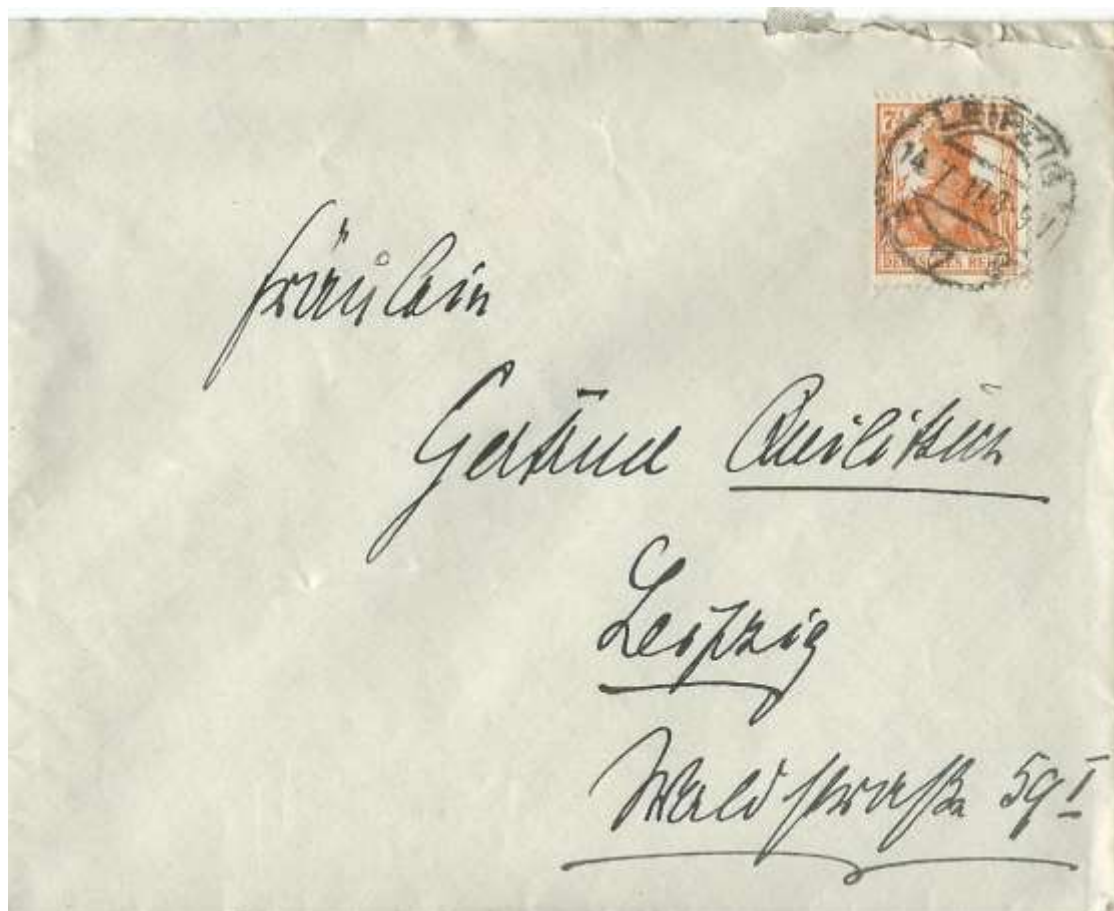 LEIPZIG
14.7.17.
7½
DEUTSCHES REICH
Fräulein
Gertrud Quilitzsch
Leipzig
Waldstraße 59 I